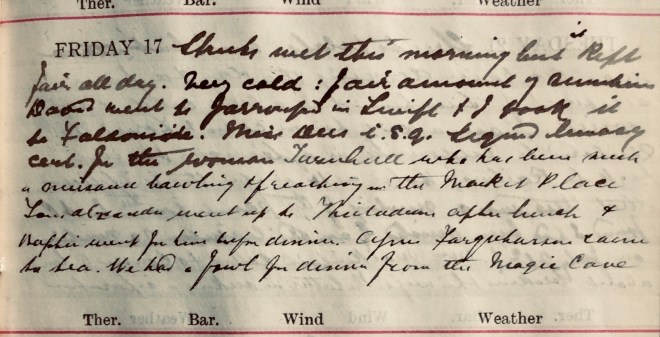 Ther. Bar. Wind Weather
FRIDAY 17 Streets wet this morning but it kept
fair all day. Very cold: fair amount of sunshine
David went to in Swift & I took it
to Faldonside. Miss signed lunacy
cert. for the woman Turnbull who has been such
a nuisance bawling & preaching in the Market Place
went up to after lunch &
went for him before dinner. Farquharson came
to tea. We had a fowl for dinner from the Magic Cave
Ther. Bar. Wind Weather